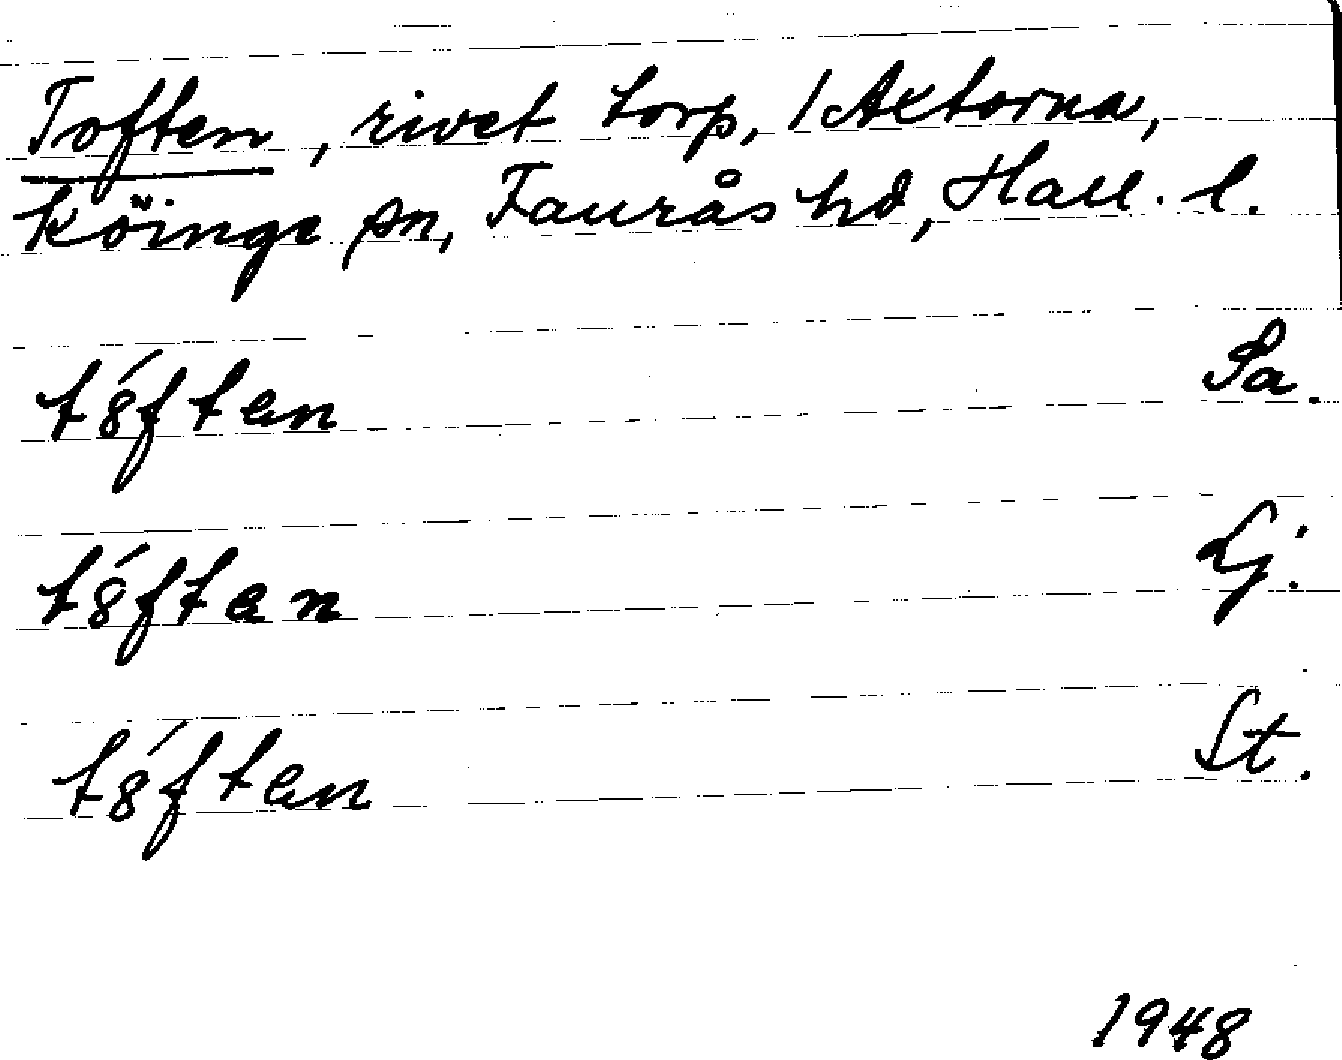 Toften, rivet torp, 1 Axtorna,
Köinge sn, Faurås hd, Hall. l.
tȣ́ften Sa.
tȣ́ften Lj.
tȣ́ften St.
1948